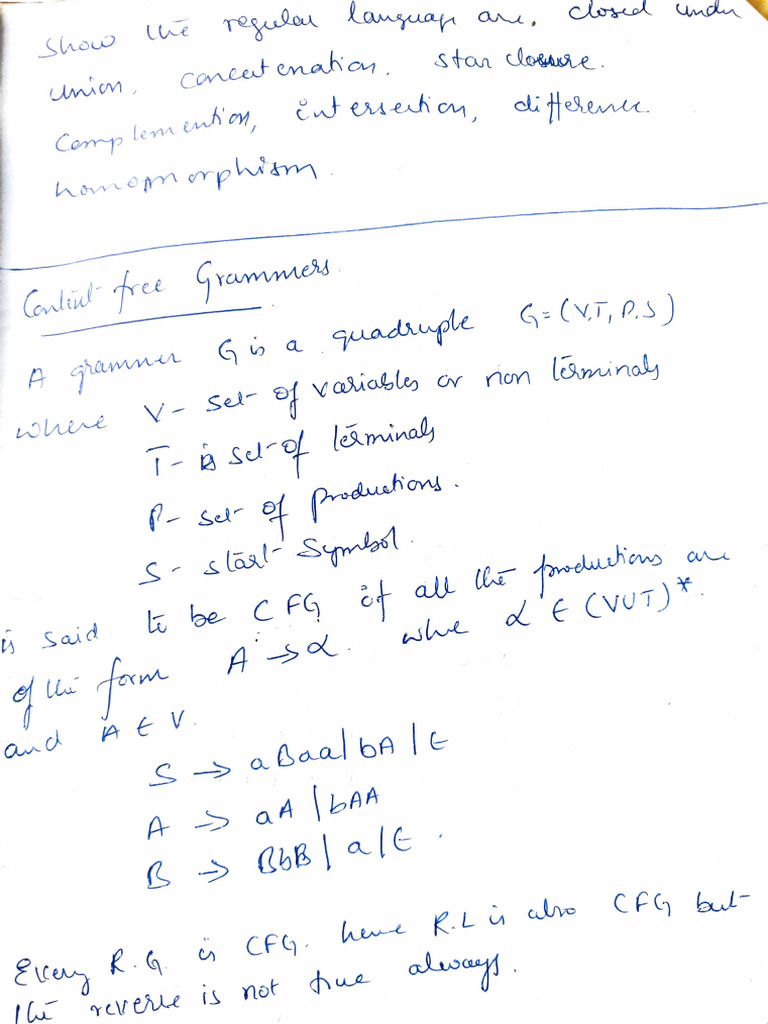 Show the regular language are, closed under
union, concatenation, star closure.
Complemention, intersection, difference
homopmorphism.
Context free Grammers.
A grammer G is a quadruple G=(V,T,P,S)
where V- set of variables or non terminals
T- is set of terminals
P- set of productions.
S- start Symbol.
is said to be CFG if all the productions are
of the form A → α. whre α ∈ (VUT)*.
and A ∈ V.
S → aBaa|bA|ϵ
A → aA|bAA
B → BbB|a|ϵ.
Every R.G. is CFG. hence R.L is also CFG but
the reverse is not true always.